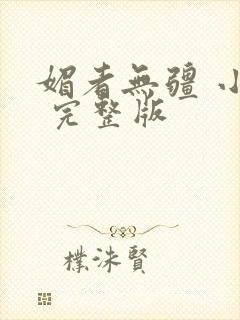 媚者無疆 小
完整版
樸洙賢